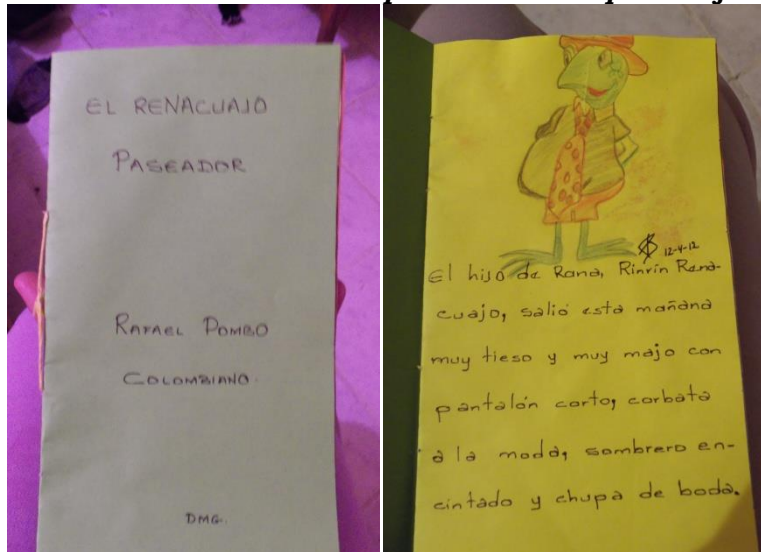 EL RENACUAJO
PASEADOR
RAFAEL POMBO
COLOMBIANO.
DMG.
12-4-12
El hijo de Rana, Rinrín Rena-
cuajo, salió esta mañana
muy tieso y muy majo con
pantalón corto, corbata
a la moda, sombrero en-
cintado y chupa de boda.